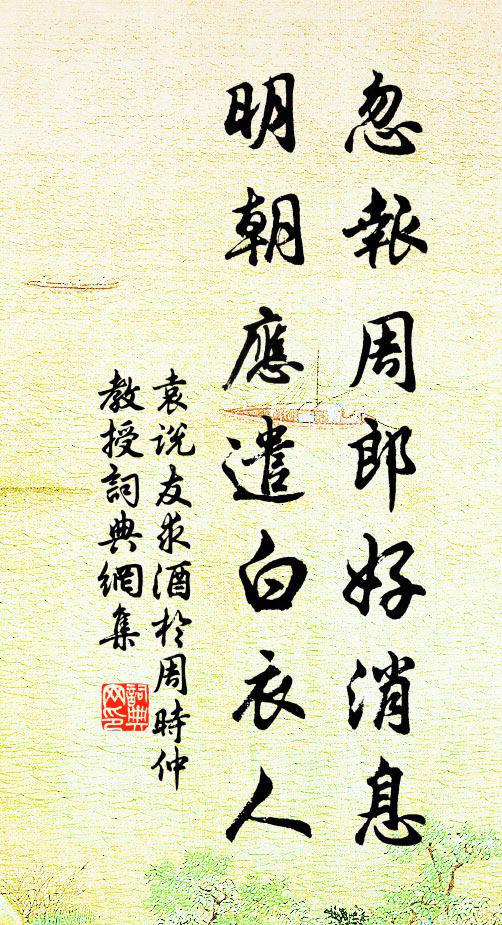 忽報周郎好消息
明朝應遣白衣人
袁說友求酒於周時仲
教授詞典網集
詞典网印